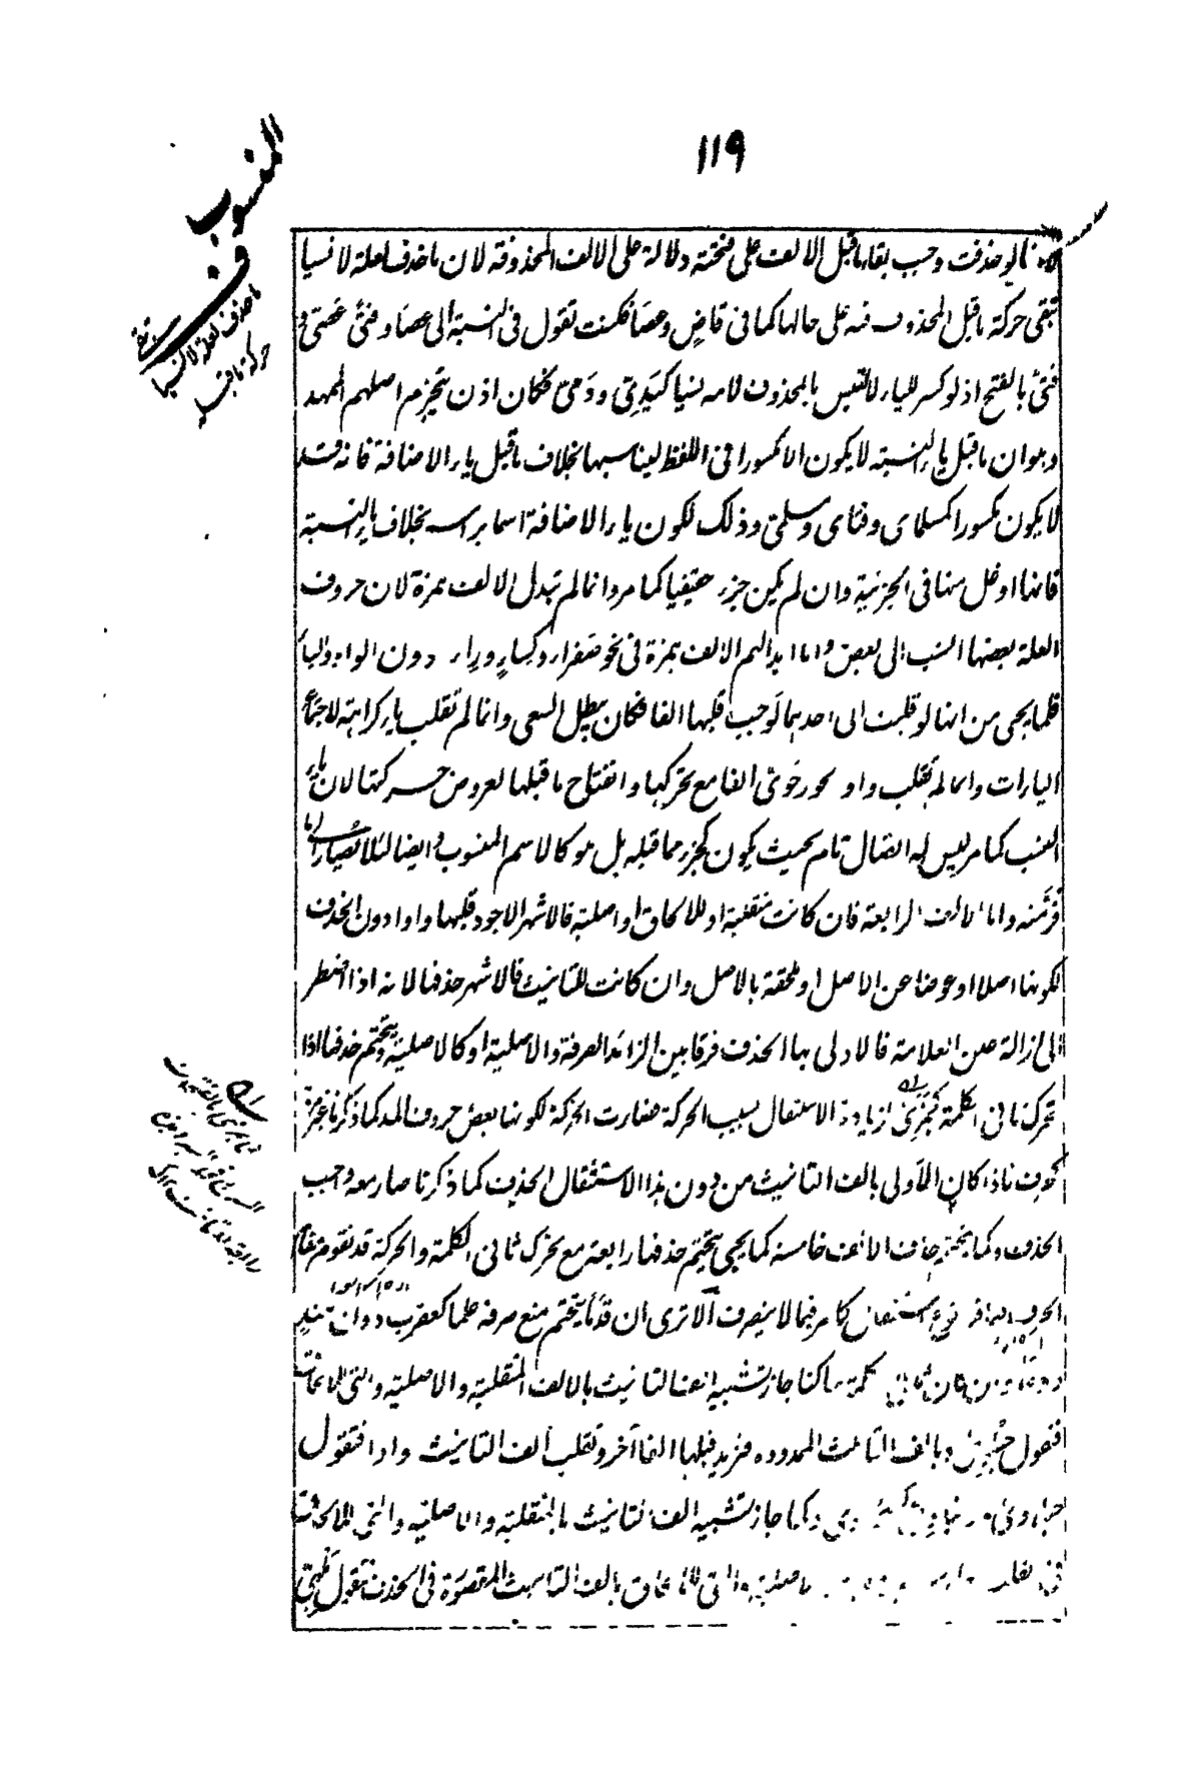 ١١٩
المنسوب
لانها لو حذفت وجب بقاء ما قبل الالف على فتحته دلالة على الالف المحذوفة لان ما حذف لعلة لا نسيا
تبقى حركة ما قبل المحذوف منه على حالها كما فى قاضٍ وعصًا فكنت تقول فى النسبة الى عصا وفتىً عصَىّ و
فتَىّ بالفتح اذ لو كسر للياء لالتبس بالمحذوف لامه نسيا كيَدِىّ ودَمِىّ فكان اذن ينخرم اصلهم الممهد
وهو ان ما قبل ياء النسبة لا يكون الا مكسورا فى اللفظ ليناسبها بخلاف ما قبل ياء الاضافة فانه قد
لا يكون مكسورا كمسلماى وفتاى ومسلمىّ وذلك لكون ياء الاضافة اسما براسه بخلاف ياء النسبة
فانها اوغل منها فى الجزئية وان لم يكن جزء حقيقيا كما مر وانما لم تبدل الالف همزة لان حروف
العلة بعضها انسب الى بعض واما ابدالهم الالف همزة فى نحو صَفراء وكِساءٍ ورداء دون الواو والياء
فلما يجى من انها لو قلبت الى احدهما لوجب قلبها الفا فكان يبطل السعى وانما لم تقلب ياء كراهة لاجتماع
الياءات وانما لم تقلب واو نحو رَحَوىّ الفا مع تحركها وانفتاح ما قبلها لعروض حركتها لان ياء
النسب كما مر ليس له اتصال تام بحيث يكون كجزء مما قبله بل هو كالاسم المنسوب وايضا لئلا يصير الى ما
فُرّ منه واما الالف الرابعة فان كانت منقلبة او للالحاق او اصلية فالاشهر الاجود قلبها واوا دون الحذف
لكونها اصلا او عوضا عن الاصل او ملحقة بالاصل وان كانت للتانيث فالاشهر حذفها لانه اذا اضطر
الى ازالة عين العلامة فالاولى بها الحذف فرقا بين الزائد الصرفة والاصلية او كالاصلية ويتحتم حذفها اذا
تحرك ثانى الكلمة كجَمَزِىّ لزيادة الاستثقال بسبب الحركة فصارت الحركة لكونها بعض حروف المد كما ذكرنا غير مرة
كحرف فاذا كان الاولى بالف التانيث من دون هذا الاستثقال الحذف كما ذكرنا صار معه وجب
الحذف وكما يتحتم حذف الالف خامسة كما يجى يتحتم حذفها رابعة مع تحرك ثانى الكلمة والحركة قد تقوم مقام
الحرف كما مر فيما لا ينصرف الا ترى ان قدَمًا يتحتم منع صرفه علما كعقرب دون هند
كلمة ساكنا جاز تشبيه الف التانيث بالالف المنقلبة والاصلية والتى للالحاق
فتقول حُبْلَوِىّ وبالف التانيث الممدودة فزيد قبلها الفا آخر وتقلب الف التانيث واوا فتقول
حبلاوىّ وكما جاز تشبيه الف التانيث بالمنقلبة والاصلية والتى للالحاق
والتى للالحاق بالف التانيث المقصورة فى الحذف فتقول مَلْهِىّ
ما حذف لعلة لا نسيا
حركة ما قبله